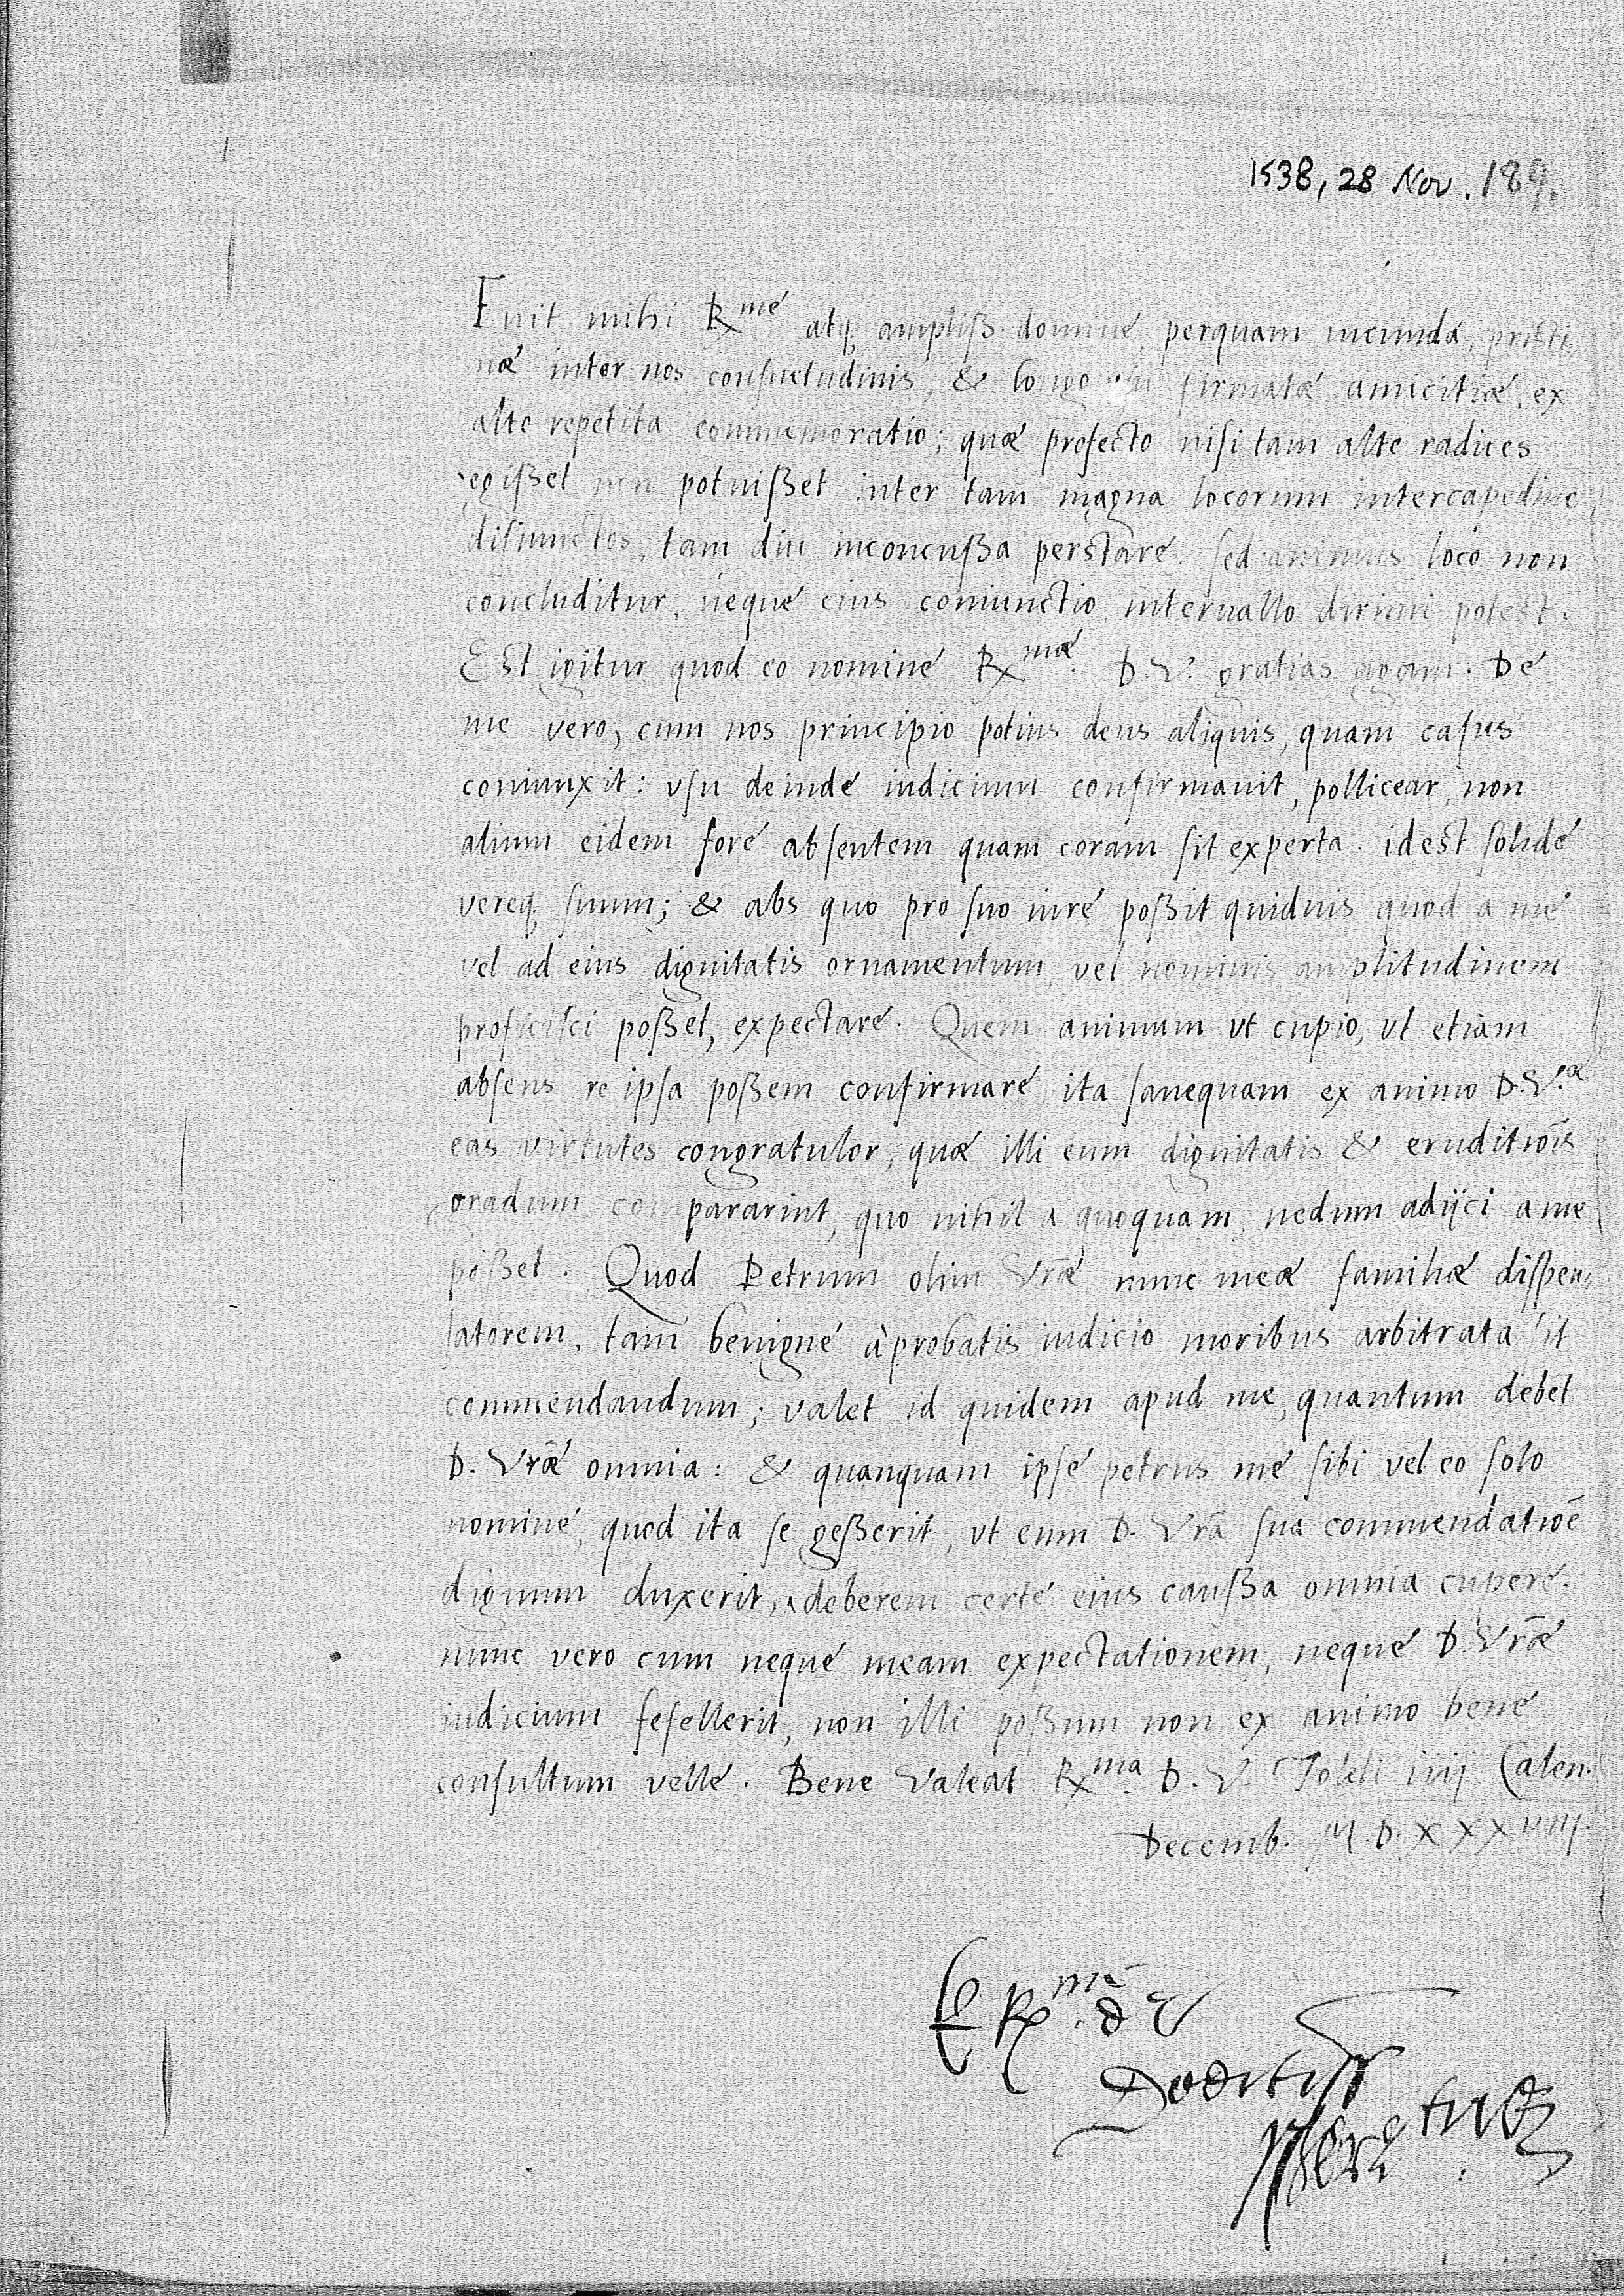 1538, 28 Nov. 189.
Fuit mihi Rme atq; ampliß. domine, perquam iucunda, pristi-
næ inter nos consuetudinis, & longo usu firmatæ amicitiæ, ex
alto repetita commemoratio; quæ profecto nisi tam alte radices
egißet non potuißet inter tam magna locorum intercapedine
disiunctos, tam diu inconcußa perstare. sed animus loco non
concluditur, neque eius coniunctio, interuallo dirimi potest.
Est igitur quod eo nomine Rmæ. D.V. gratias agam. De
me vero, cum nos principio potius deus aliquis, quam casus
coniunxit: vsu deinde iudicium confirmauit, pollicear, non
alium eidem fore absentem quam coram sit experta. idest solide
vereq; suum; & abs quo pro suo iure poßit quiduis quod a me
vel ad eius dignitatis ornamentum, vel nominis amplitudinem
proficisci poßet, expectare. Quem animum vt cupio, vt etiam
absens re ipsa poßem confirmare, ita sanequam ex animo D.V.æ
eas virtutes congratulor, quæ illi eum dignitatis & eruditiōis
gradum compararint, quo nihil a quoquam, nedum adijci a me
poßet. Quod Petrum olim Vræ nunc meæ familiæ dispen-
satorem, tam benigne à probatis iudicio moribus arbitrata sit
commendandum; valet id quidem apud me, quantum debet
D. Vræ omnia: & quanquam ipse petrus me sibi vel eo solo
nomine, quod ita se geßerit, vt eum D. Vrā sua commendatiōe
dignum duxerit, deberem certe eius caußa omnia cupere.
nunc vero cum neque meam expectationem, neque D. Vræ
iudicium fefellerit, non illi poßum non ex animo bene
consultum velle. Bene Valeat Rma. D. V. Toleti iiij Calen.
Decemb. M.D.XXXVIII.
E Rmē. d V
Deditiss